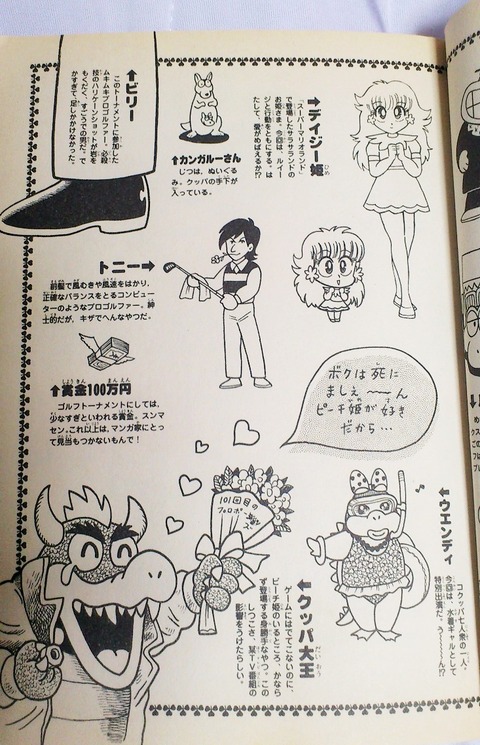 ↑ビリー
このトーナメントに参加した
ムキムキプロゴルファー。必殺
技のハリケーンショットが岩を
もくだく、すごうでの男だ。で
かすぎて、足しかかけなかった。
↑カンガルーさん
じつは、ぬいぐる
み。クッパの手下が
入っている。
→デイジー姫
ひめ
「スーパーマリオランド」
で登場したサラサランドの
お姫さま。今回は、ルイー
ジと行動をともにする。は
たして、愛がめばえるか!?
トニー→
前髪で風むきや風速をはかり、
正確なバランスをとるコンピュー
ターのようなプロゴルファー。紳
士的だが、キザでへんなやつだ。
↑賞金100万円
しょうきん まんえん
ゴルフトーナメントにしては、
少なすぎといわれる賞金。スンマ
セン。これ以上は、マンガ家にとっ
て見当もつかないもんで!
ボクは死に
ましぇ〜〜ん
ピーチ姫が好き
だから…
101回目の
プロポーズ
←ウエンディ
コクッパ七人衆の一人。
今回は、水着ギャルとして
特別出演だ。う〜〜ん!?
←クッパ大王
だいおう
ゲームにはでてこないのに、
ピーチ姫のいるところ、かなら
ず登場する身勝手なやつ。この
しつこさ、某TV番組の
影響をうけたらしい。